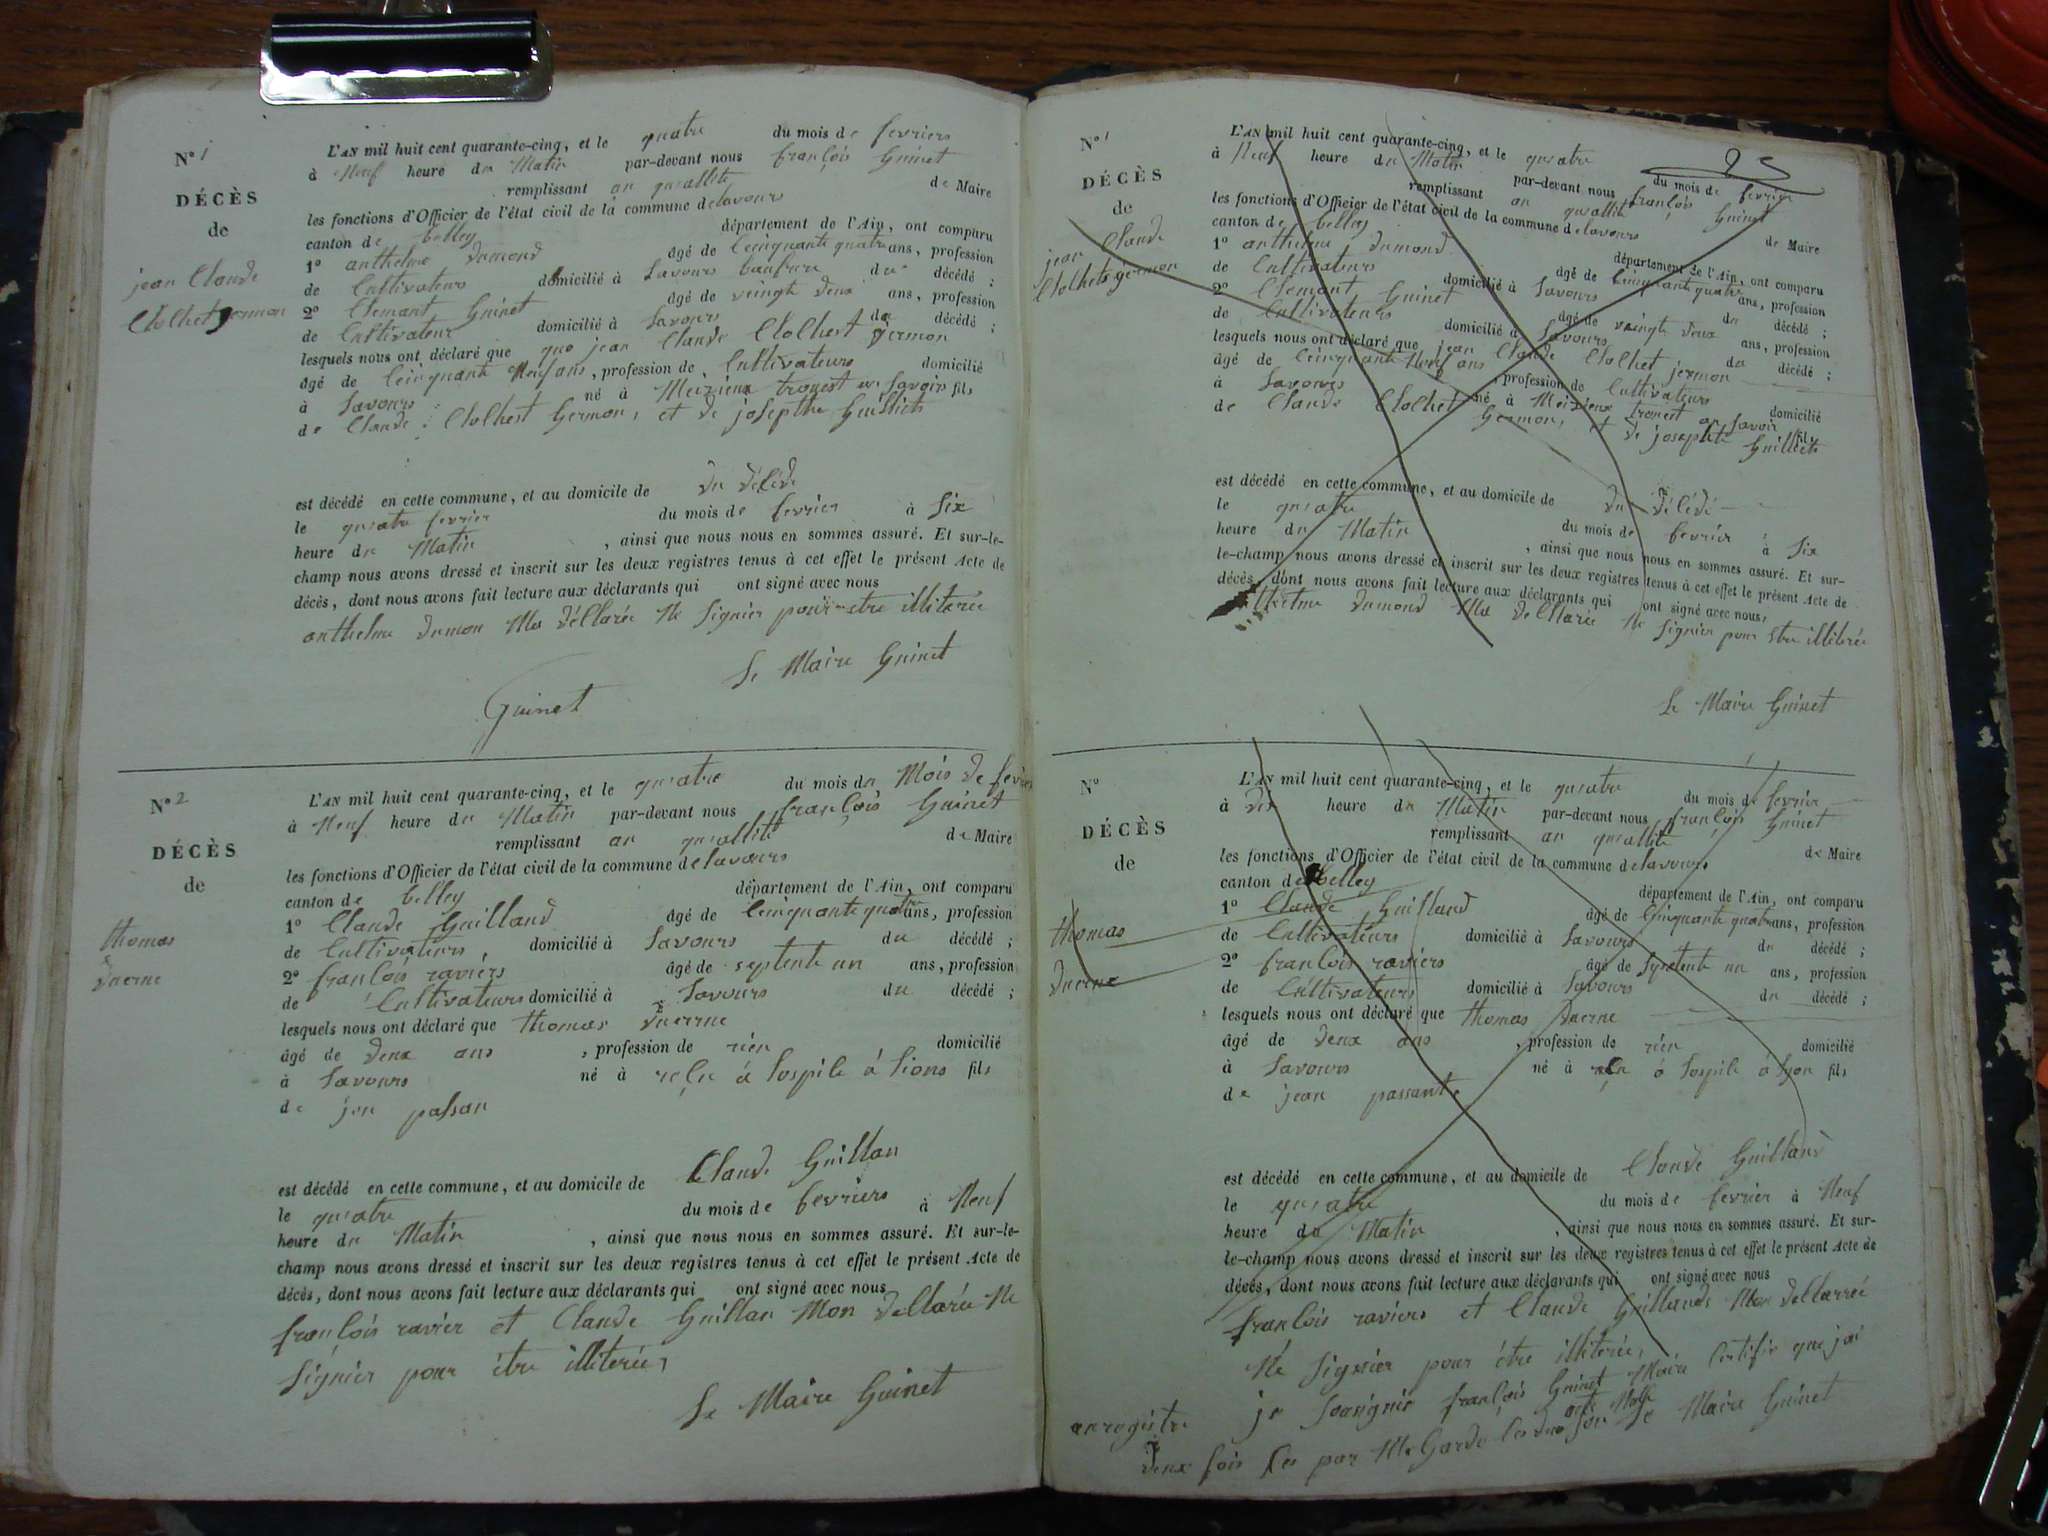 N° 1
DÉCÈS
de
jean Claude
Clochet germon
L'AN mil huit cent quarante-cinq, et le quatre du mois de fevriers
à Neuf heure du Matin par-devant nous françois Guinet
remplissant an quallité de Maire
les fonctions d'Officier de l'état civil de la commune de lavours
canton de belley département de l'Ain, ont comparu
1° anthelme dumond âgé de cinquante quatre ans, profession
de Cultivateurs domicilié à Lavours du décédé ;
2° Clemant Guinet âgé de veingte deux ans, profession
de Cultivateur domicilié à Lavours du décédé ;
lesquels nous ont déclaré que que jean Claude Clochest germon
âgé de Cinquante Neuf ans, profession de Cultivateurs domicilié
à Lavours né à fils
de Claude Clochest Germon, et de josepthe
est décédé en cette commune, et au domicile de du décédé
le quatre fevrier du mois de fevrier à Six
heure du Matin , ainsi que nous nous en sommes assuré. Et sur-le-
champ nous avons dressé et inscrit sur les deux registres tenus à cet effet le présent Acte de
décès, dont nous avons fait lecture aux déclarants qui ont signé avec nous
anthelme dumon Ma déclarée Ne Signier pour estre illiterée
Le Maire Guinet
Guinet
N° 2
DÉCÈS
de
thomas
duerne
L'AN mil huit cent quarante-cinq, et le quatre du mois du Mois de fevrier
à Neuf heure du Matin par-devant nous françois Guinet
remplissant an quallité de Maire
les fonctions d'Officier de l'état civil de la commune de lavours
canton de belley département de l'Ain, ont comparu
1° Claude Guilland âgé de Cinquante quatre ans, profession
de Cultivateurs domicilié à Lavours du décédé ;
2° françois raviérs âgé de septente un ans, profession
de Cultivateurs domicilié à Lavours du décédé ;
lesquels nous ont déclaré que thomas duerrne
âgé de deux ans , profession de rién domicilié
à Lavours né à á Lospile á Lions fils
de jen passan
est décédé en cette commune, et au domicile de Claude Guillan
le quatre du mois de fevriers à Neuf
heure du Matin , ainsi que nous nous en sommes assuré. Et sur-le-
champ nous avons dressé et inscrit sur les deux registres tenus à cet effet le présent Acte de
décès, dont nous avons fait lecture aux déclarants qui ont signé avec nous
françois ravier et Claude Guillan Mon declarée Ne
Signier pour être illiterée,
Le Maire Guinet
25
N° 1
DÉCÈS
de
jean Claude
Clochets germon
L'AN mil huit cent quarante-cinq, et le quatre du mois de fevrier
à Neuf heure du Matin par-devant nous françois Guinet
remplissant an quallité de Maire
les fonctions d'Officier de l'état civil de la commune de lavours
canton de belley département de l'Ain, ont comparu
1° anthelme dumond âgé de Cinquante quatre ans, profession
de Cultivateurs domicilié à Lavours du décédé ;
2° Clemant Guinet âgé de veingte deux ans, profession
de Cultivateurs domicilié à Lavours du décédé ;
lesquels nous ont déclaré que jean Claude Clochet jermon
âgé de Cinquante Neuf ans , profession de Cultivateurs domicilié
à Lavours né à fils
de Claude Clochet Germon, et de josephte
est décédé en cette commune, et au domicile de du décédé
le quatre du mois de fevrier à Six
heure du Matin , ainsi que nous nous en sommes assuré. Et sur-
le-champ nous avons dressé et inscrit sur les deux registres tenus à cet effet le présent Acte de
décès, dont nous avons fait lecture aux déclarants qui ont signé avec nous,
dumond Ma declarée Ne Signier pour Etre illiterée
Le Maire Guinet
N°
DÉCÈS
de
thomas
duerne
L'AN mil huit cent quarante-cinq, et le quatre du mois de fevrier
à Dix heure du Matin par-devant nous françois Guinet
remplissant an quallité de Maire
les fonctions d'Officier de l'état civil de la commune de lavours
canton de belley département de l'Ain, ont comparu
1° Claude Guilland âgé de Cinquante quatre ans, profession
de Cultivateurs domicilié à Lavours du décédé ;
2° françois raviérs âgé de septente un ans, profession
de Cultivateurs domicilié à Lavours du décédé ;
lesquels nous ont déclaré que thomas duerne
âgé de deux ans , profession de rién domicilié
à Lavours né à á Lospile á Lyon fils
de jean passant
est décédé en cette commune, et au domicile de Claude Guilland
le quatre du mois de fevrier à Neuf
heure du Matin , ainsi que nous nous en sommes assuré. Et sur-
le-champ nous avons dressé et inscrit sur les deux registres tenus à cet effet le présent Acte de
décès, dont nous avons fait lecture aux déclarants qui ont signé avec nous
françois raviers et Claude Guillands Mon declarrée
Né Signier pour étre illiterée,
je Sousignié françois Guinet Maire Certifie que jai
anregistre
deux fois par Me Garde Le Maire Guinet